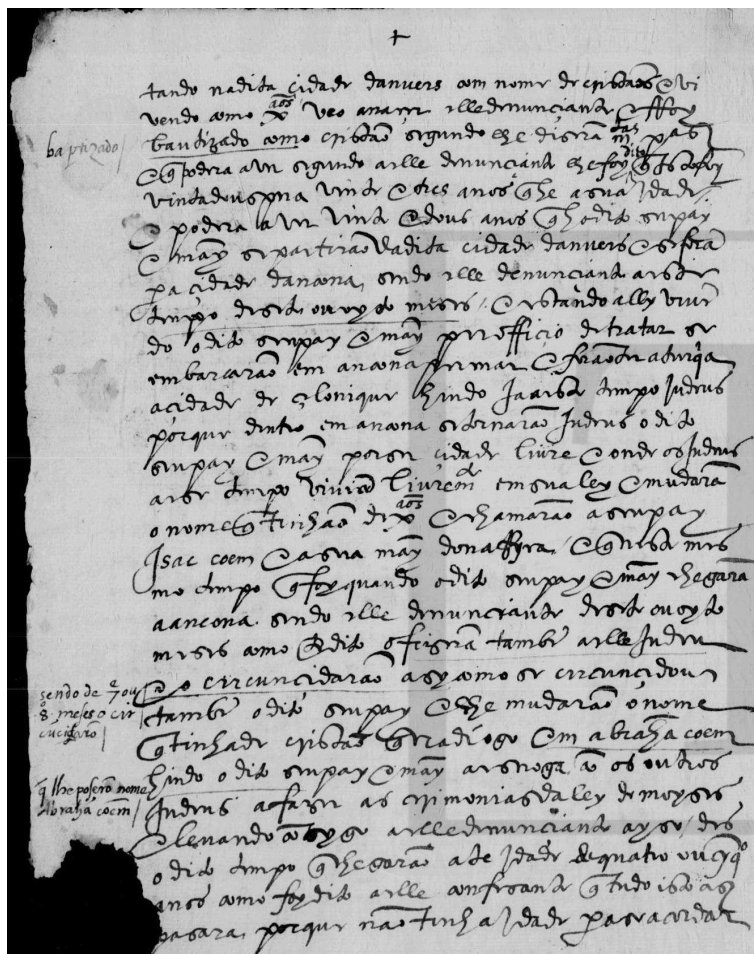 tando na dita cidade danvers com nome de cristãos e vi
vendo como xpãos veo a nacer elle denunciante e ffoy
baptizado
bautizado como cristão segundo lhe diserã
e poderia aver segundo a elle denunciante lhe foy dito q̃ isto foy
vinta dous pera vinte e tres anos q̃ he a sua Idade
e poderia aver vinte e dous anos q̃ ho dito seu pay
e mãy se partirão da dita cidade danvers e se forã
pa cidade dancona, sendo elle denunciante a este
tempo de sete ou oyto meses, e estando ally viven
do o dito seu pay e mãy per officio de tratar se
embarcarão em ancona per mar e forão turquia
a cidade de çalonique hindo Ja a este tempo Judeus
porque dentro em ancona se tornarão Judeus o dito
seu pay e mãy por ser cidade livre e onde os Judeus
a esse tempo viviaõ livremte em sua ley e mudarã
o nome q̃ tinhão de xpãos e chamarão a seu pay
Isac coem e a sua mãy dona e q̃ neste mes
mo tempo q̃ foy quando o dito seu pay e mãy chegarã
a ancona sendo elle denunciante de sete ou oyto
meses como dito fizerã tambẽ a elle Judeu
sendo de 7 ou
8 meses o cir
cũcidarão
e o circuncidarão asy como se circuncidou
tambẽ o dito seu pay e lhe mudarão o nome
q̃ tinha de cristão q̃ era diogo em abrahã coem
q̃ lhe poserõ nome
Abrahã coem
hindo o dito seu pay e mãy a esnoga cõ os outros
Judeus a fazer as cirimonias da ley de moyses
e levando cõsygo a elle denunciante a yso, des
o dito tempo q̃ chegarão ate Idade de quatro ou cyqo
anos como foy dito a elle confesante q̃ tudo isto asy
pasara, porque não tinha Idade pa se acordar